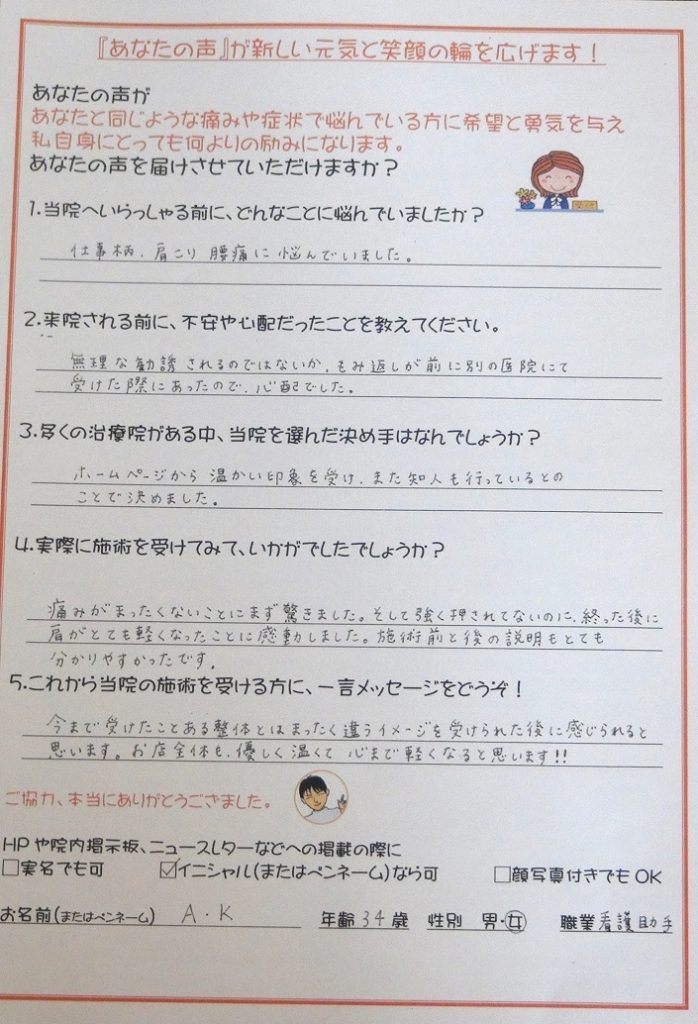 『あなたの声』が新しい元気と笑顔の輪を広げます！
あなたの声が
あなたと同じような痛みや症状で悩んでいる方に希望と勇気を与え
私自身にとっても何よりの励みになります。
あなたの声を届けさせていただけますか？
1.当院へいらっしゃる前に、どんなことに悩んでいましたか？
仕事柄、肩こり 腰痛に悩んでいました。
2.来院される前に、不安や心配だったことを教えてください。
無理な勧誘されるのではないか、もみ返しが前に別の医院にて
受けた際にあったので、心配でした。
3.多くの治療院がある中、当院を選んだ決め手はなんでしょうか？
ホームページから温かい印象を受け、また知人も行っているとの
ことで決めました。
4.実際に施術を受けてみて、いかがでしたでしょうか？
痛みがまったくないことにまず驚きました。そして強く押されてないのに、終った後に
肩がとても軽くなったことに感動しました。施術前と後の説明もとても
分かりやすかったです。
5.これから当院の施術を受ける方に、一言メッセージをどうぞ！
今まで受けたことある整体とはまったく違うイメージを受けられた後に感じられると
思います。お店全体も、優しく温くて 心まで軽くなると思います!!
ご協力、本当にありがとうごさました。
HPや院内掲示板、ニュースレターなどへの掲載の際に
□実名でも可 ☑イニシャル(またはペンネーム)なら可 □顔写真付きでもOK
お名前(またはペンネーム) A・K 年齢34歳 性別 男・女 職業看護助手